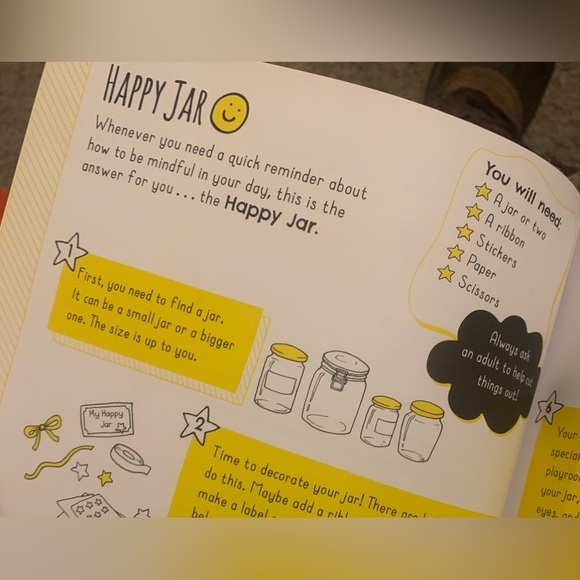 HAPPY JAR
Whenever you need a quick reminder about
how to be mindful in your day, this is the
answer for you... the Happy Jar.
You will need:
A jar or two
A ribbon
Stickers
Paper
Scissors
Always ask
an adult to help cut
things out!
1
First, you need to find a jar.
It can be a small jar or a bigger
one. The size is up to you.
My Happy
Jar
2
Time to decorate your jar! There are
do this. Maybe add a
make a label
6
Your
special
your jar,
eyes, and